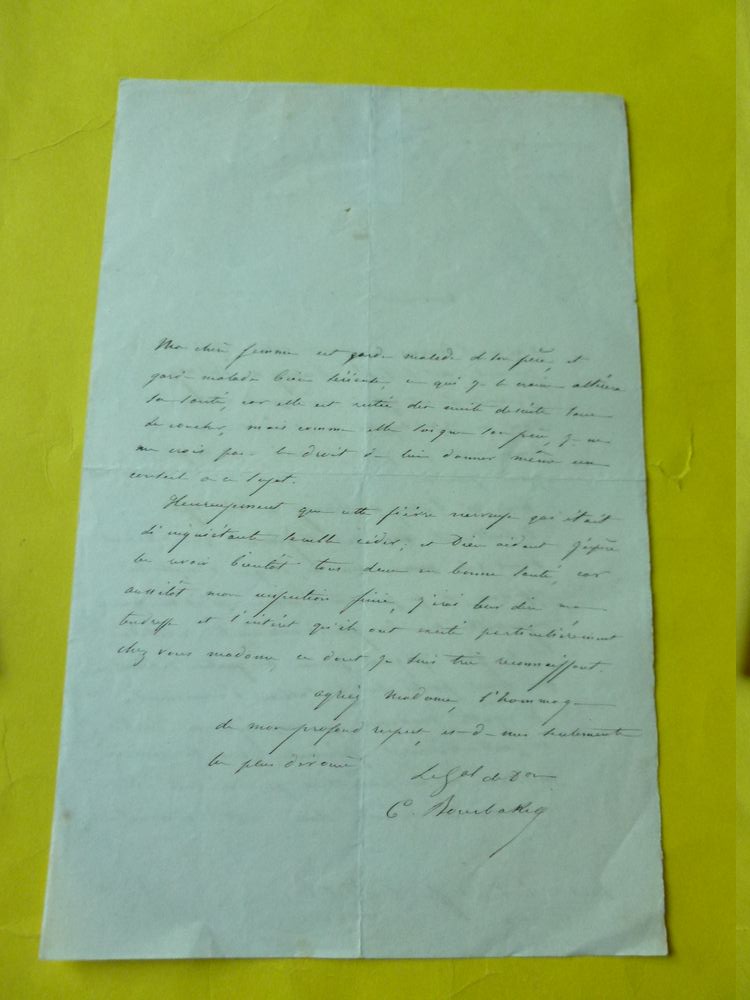 Ma chère femme est garde malade de son père, et
garde malade bien sérieuse, ce qui je le crains altérera
sa santé, car elle est restée dix nuits de suite sans
se coucher, mais comme elle soigne son père, je ne
me crois pas le droit de lui donner même un
conseil à ce sujet.
Heureusement que cette fièvre nerveuse qui était
si inquiétante semble céder, et Dieu aidant j'espère
les revoir bientôt tous deux en bonne santé, car
aussitôt mon inspection finie, j'irai leur dire ma
tendresse et l'intérêt qu'ils ont excité particulièrement
chez vous madame, ce dont je suis très reconnaissant.
agréez Madame, l'hommage
de mon profond respect, et de mes sentiments
les plus dévoués
Le Gal de Don
C. Bourbaki